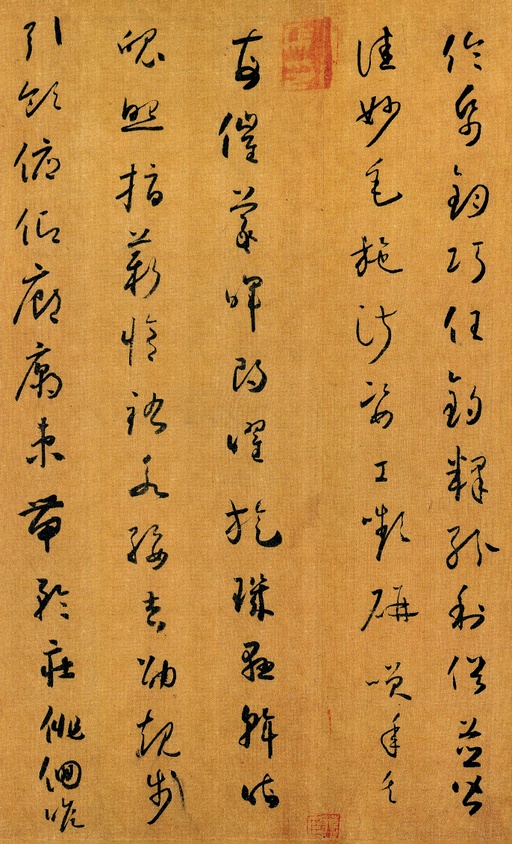 倫帋鈞巧任釣釋紛利俗並皆
佳妙毛施淑姿工嚬研笑年矢
每催羲暉朗曜旋璣懸斡晦
魄照指薪脩祜永綏吉劭矩步
引領俯仰廊廟束帶矜莊徘徊瞻